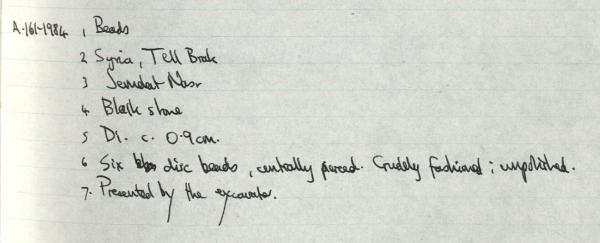 A.161-1984 1 Beads
2 Syria, Tell Brak
3 Jemdat Nasr
4 Black stone
5 Di. c. 0.9cm.
6 Six disc beads, centrally pierced. Crudely fashioned; unpolished.
7. Presented by the excavator.